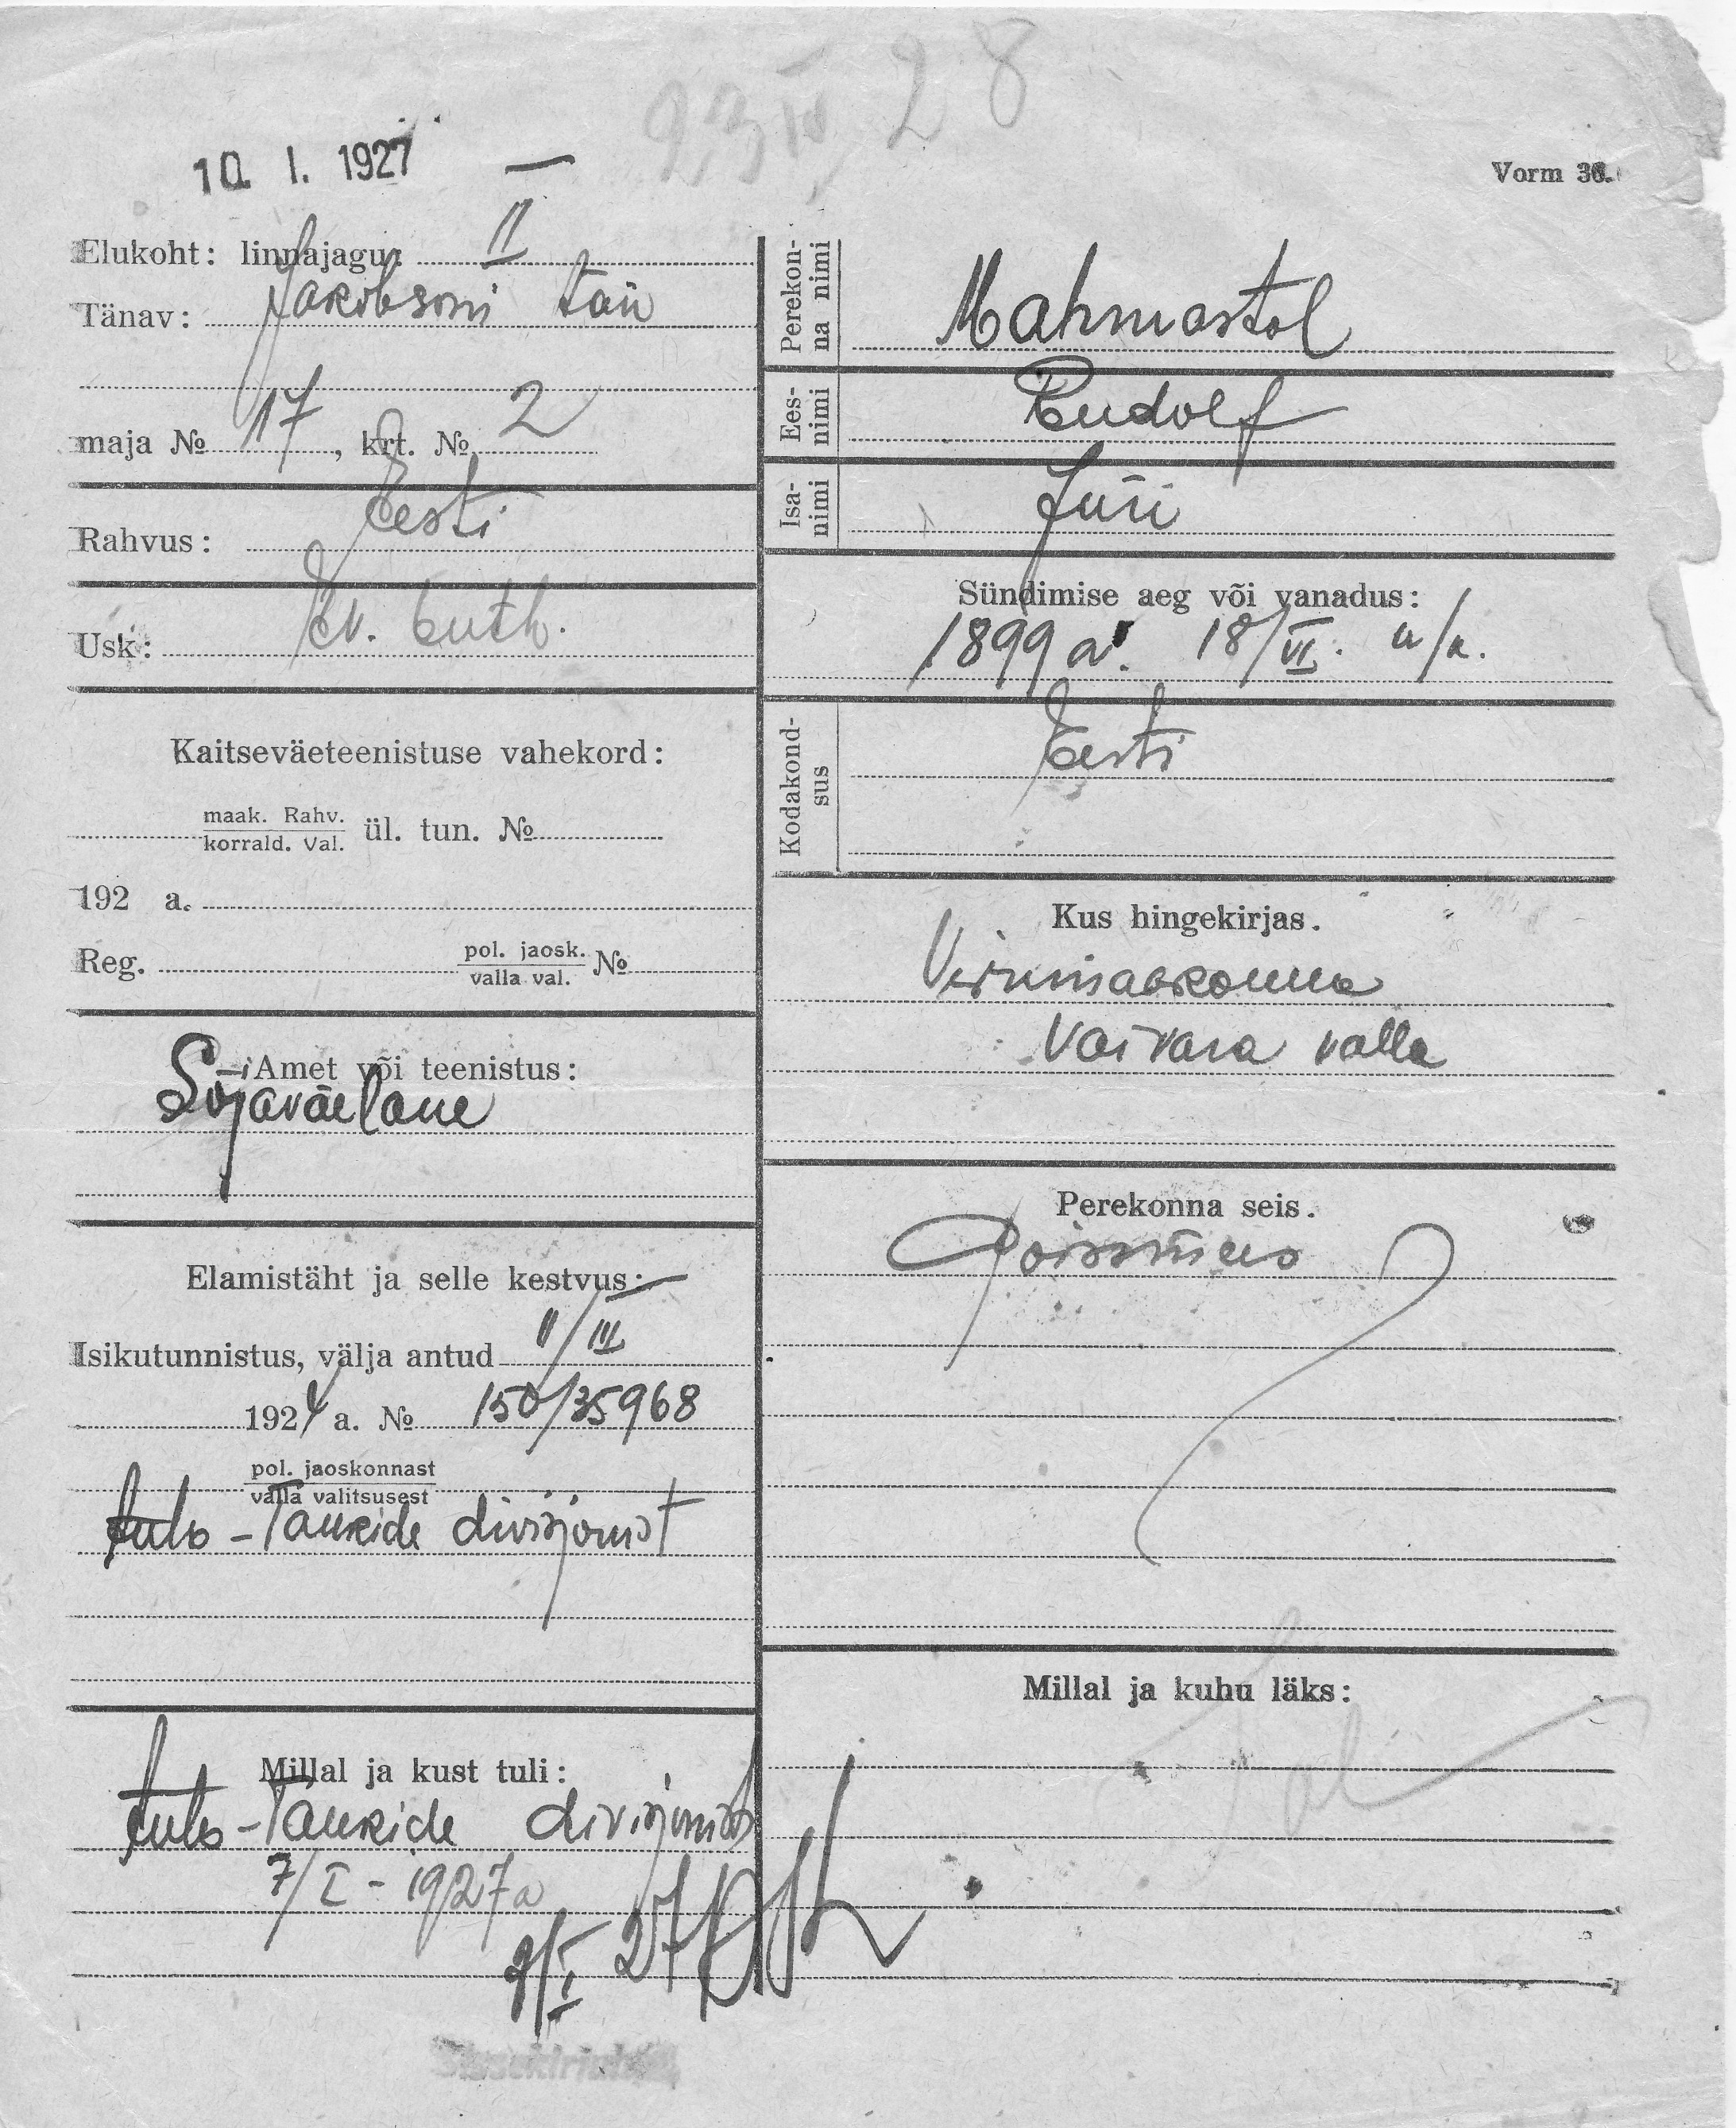 23 IV 28
10. I. 1927 —
Vorm 36.
Elukoht: linnajagu: II
Tänav: Jakobsoni tän
maja № 17, krt. № 2
Rahvus: Eesti
Usk: Ev. luth.
Kaitseväeteenistuse vahekord:
maak. Rahv.
korrald. Val. ül. tun. №
192 a.
Reg. pol. jaosk.
valla val. №
Amet või teenistus:
Sõjaväelane
Elamistäht ja selle kestvus: —
Isikutunnistus, välja antud 11/III
1924 a. № 150/35968
pol. jaoskonnast
valla valitsusest
Auto-Tankide divisjonist
Millal ja kust tuli:
Auto-Tankide divisjonist
7/I - 1927 a
9/I 27
Perekon-
na nimi
Mahmastol
Ees-
nimi
Rudolf
Isa-
nimi
Jüri
Sündimise aeg või vanadus:
1899 a. 18/VI. u/k.
Kodakond-
sus
Eesti
Kus hingekirjas.
Virumaakonna
Vaivara valla
Perekonna seis.
Poissmees
Millal ja kuhu läks: